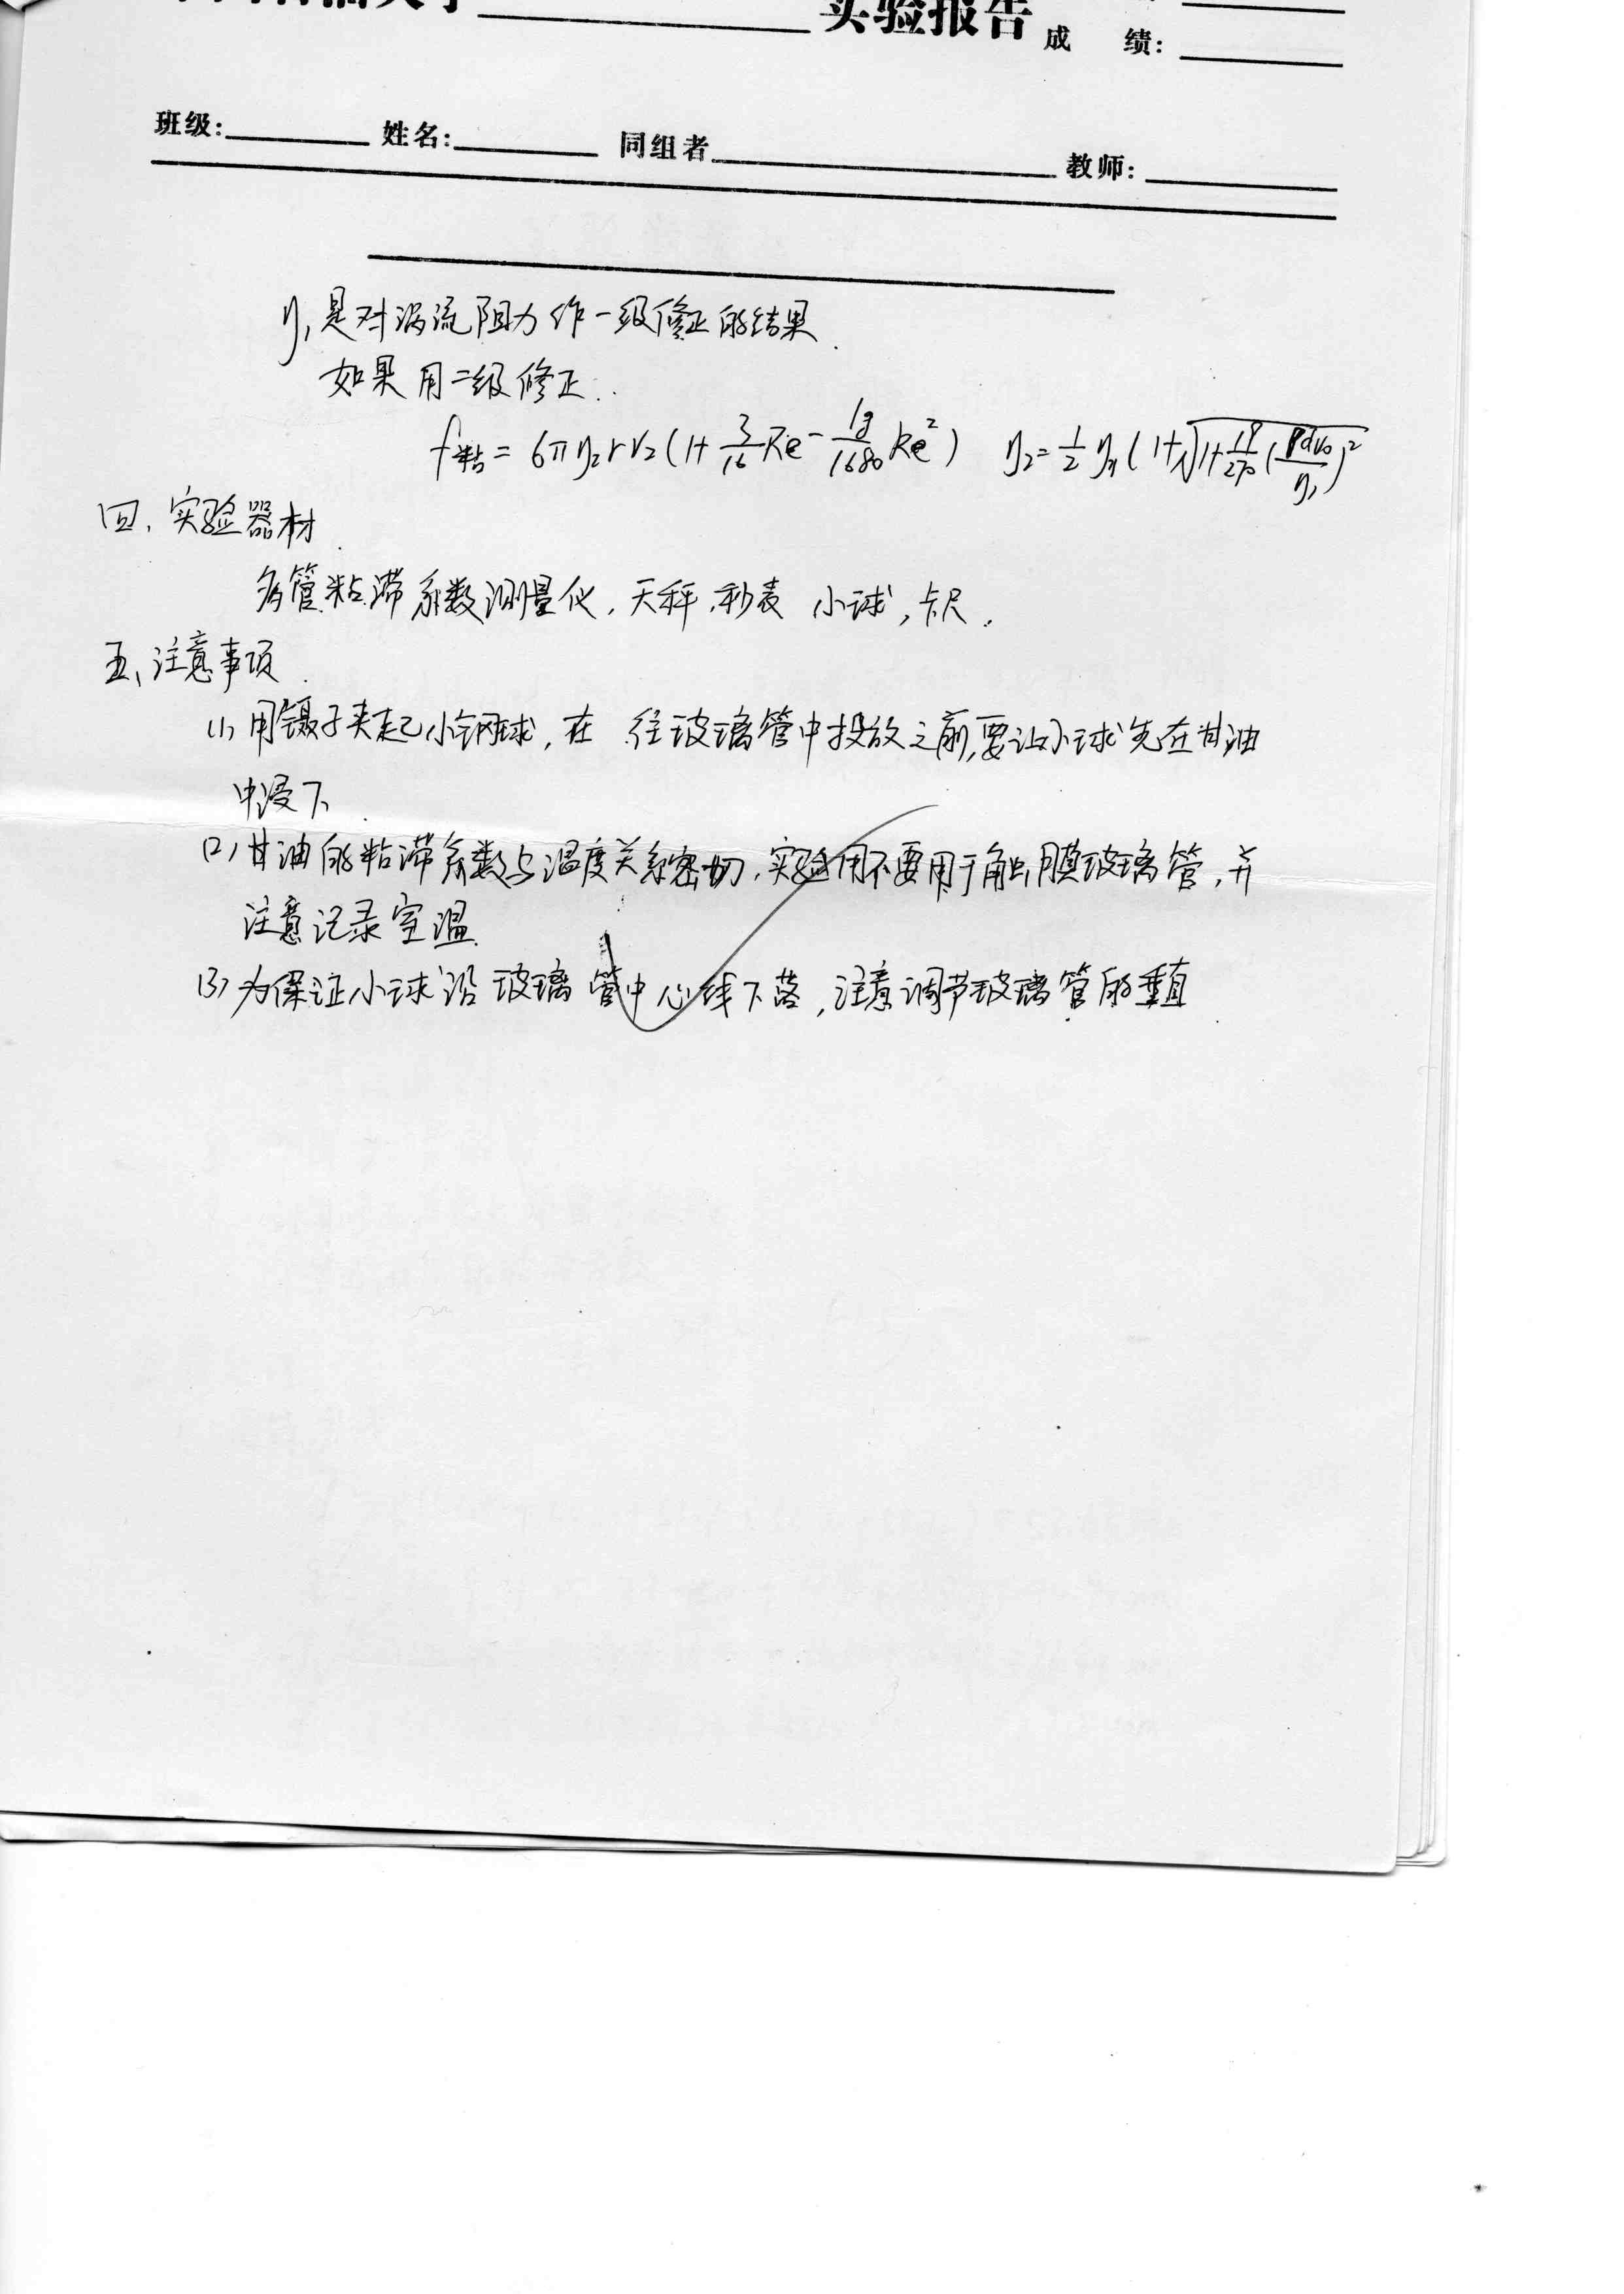 实验报告
成 绩:
班级: 姓名: 同组者 教师:
η₁是对涡流阻力作一级修正的结果.
如果用二级修正:
f粘 = 6πη₂rv₂(1+3/16Re-19/1680Re²) η₂=1/2η₁(1+√(1+19/270(ρdv₀/η₁)²
四、实验器材
多管粘滞系数测量仪,天秤,秒表 小球,卡尺.
五、注意事项
(1) 用镊子夹起小钢球,在 往玻璃管中投放之前,要让小球先在甘油
中浸下
(2) 甘油的粘滞系数与温度关系密切,实验用不要用手触膜玻璃管,并
注意记录室温
(3) 为保证小球沿玻璃管中心线下落,注意调节玻璃管的垂直